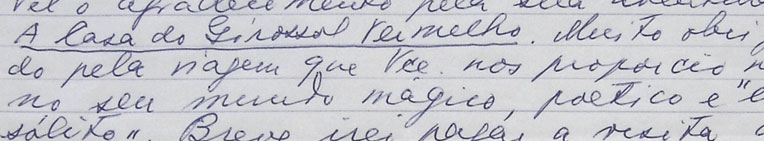 vel o agradecimento pela sua
A Casa do Girassol Vermelho. Muito obri
do pela viagem que Vce. nos proporcio
no seu mundo mágico, poético e "
sólito". Breve irei pagar a visita